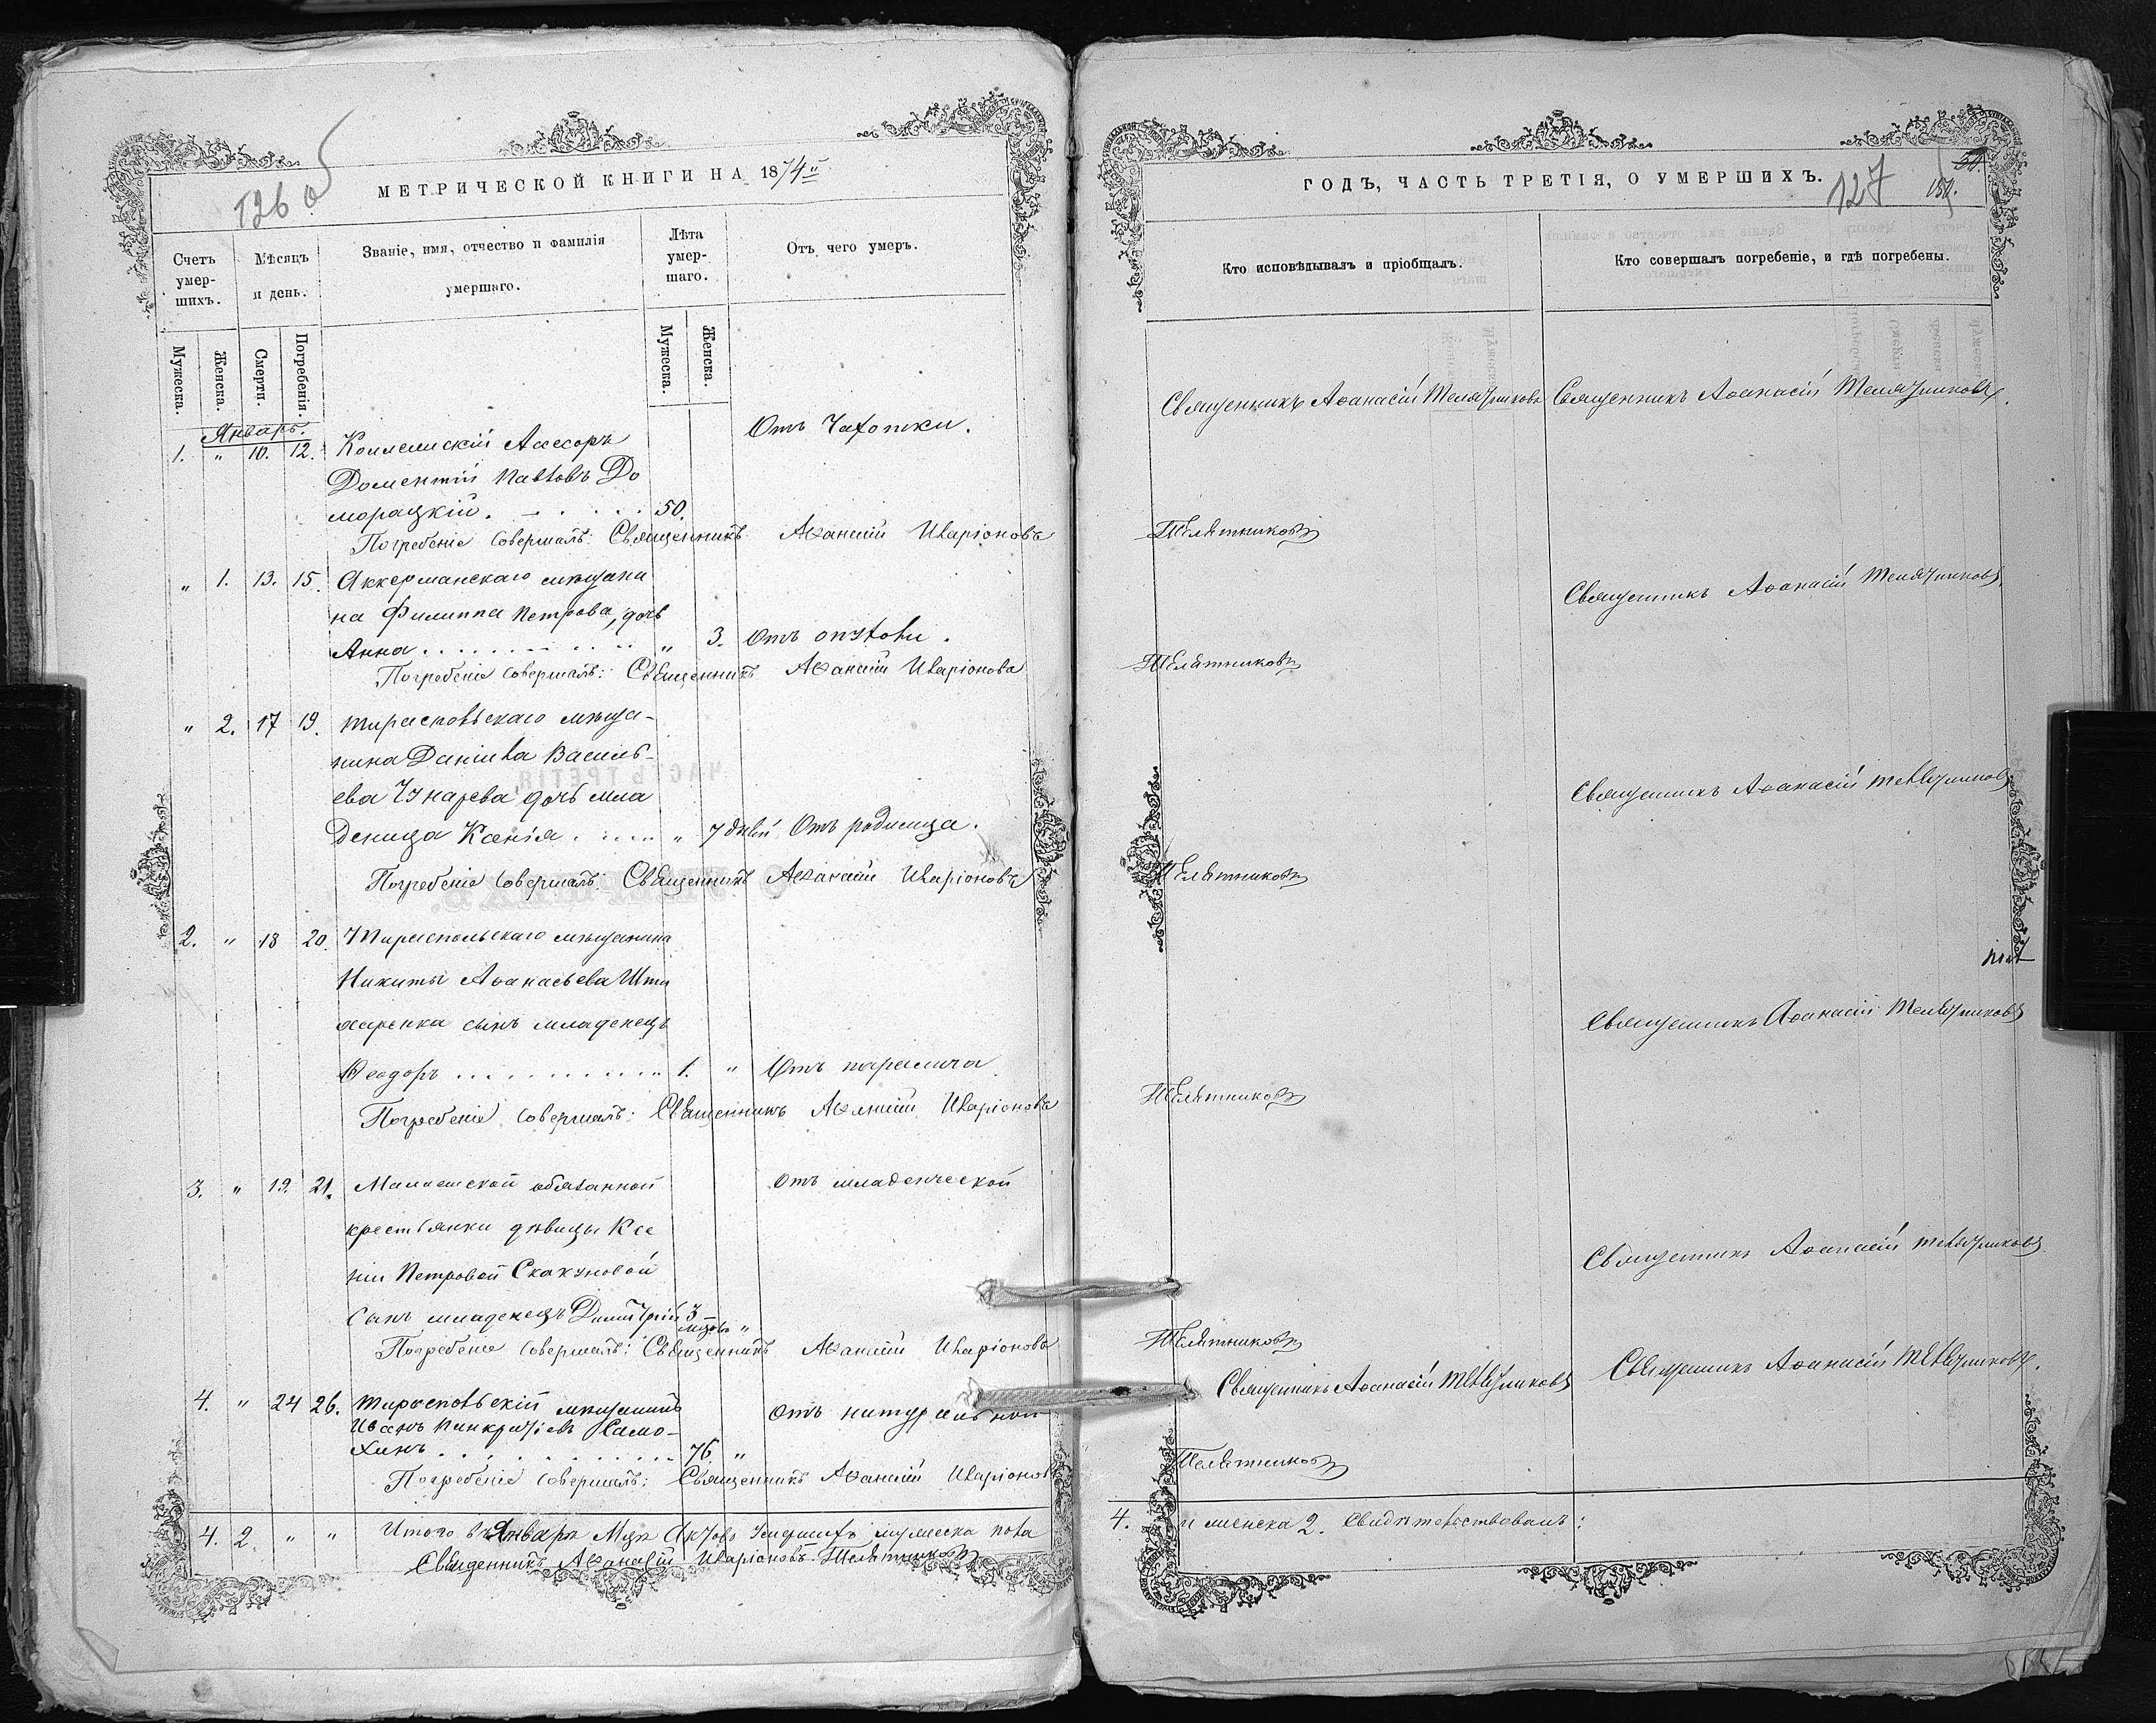 126 об
МЕТРИЧЕСКОЙ КНИГИ НА 1874й
Счетъ умер-шихъ.
Мѣсяцъ и день.
Званіе, имя, отчество и фамилія умершаго.
Лѣта умер-шаго.
Отъ чего умеръ.
Мужеска.
Женска.
Смерти.
Погребенія.
Мужеска.
Женска.
Январь.
1. " 10. 12. Коллежскій Ассесоръ
Отъ Чахотки.
Доментій Павловъ До
морацкій. 50.
Погребеніе совершалъ: Священникъ Аѳанасій Иларіоновъ
" 1. 13. 15. Аккерманскаго мѣщани
на Филиппа Петрова, дочь
Анна " 3. Отъ опухоли.
Погребеніе совершалъ: Священникъ Аѳанасій Иларіоновъ
" 2. 17 19. Тираспольскаго мѣща-
нина Даніила Василь-
ева Чукарева дочь мла
деница Ксенія " 7 дней Отъ родимца.
Погребеніе совершалъ: Священникъ Аѳанасій Иларіоновъ
2. " 18 20. Тираспольскаго мѣщанина
Никиты Аѳанасьева
сынъ младенецъ
Ѳеодоръ 1. " Отъ паралича
Погребеніе совершалъ: Священникъ Аѳанасій Иларіоновъ
3. " 19. 21. обязанной
Отъ младенческой
крестьянки дѣвицы Ксе
ніи Петровой Скакуновой
сынъ младенецъ Димитрій 3 мѣсяц. "
Погребеніе совершалъ: Священникъ Аѳанасій Иларіоновъ
4. " 24 26. Тираспольскій мѣщанинъ
Иванъ Панкратіевъ Само-
Отъ натуральной
хинъ 76 "
Погребеніе совершалъ: Священникъ Аѳанасій Иларіоновъ
4. 2. " " Итого въ Январѣ Мцѣ умершихъ мужеска пола
Священникъ Аѳанасій Иларіоновъ Телятниковъ
ГОДЪ, ЧАСТЬ ТРЕТІЯ, О УМЕРШИХЪ.
127
Кто исповѣдывалъ и пріобщалъ.
Кто совершалъ погребеніе, и гдѣ погребены.
Священникъ Аѳанасій Телятниковъ Священникъ Аѳанасій Телятниковъ.
Телятниковъ
Священникъ Аѳанасій Телятниковъ.
Телятниковъ
Священникъ Аѳанасій Телятниковъ
Телятниковъ
Священникъ Аѳанасій Телятниковъ
Телятниковъ
Священникъ Аѳанасій Телятниковъ
Телятниковъ
Священникъ Аѳанасій Телятниковъ Священникъ Аѳанасій Телятниковъ.
Телятниковъ
4. и женска 2. Свидѣтельствовалъ: